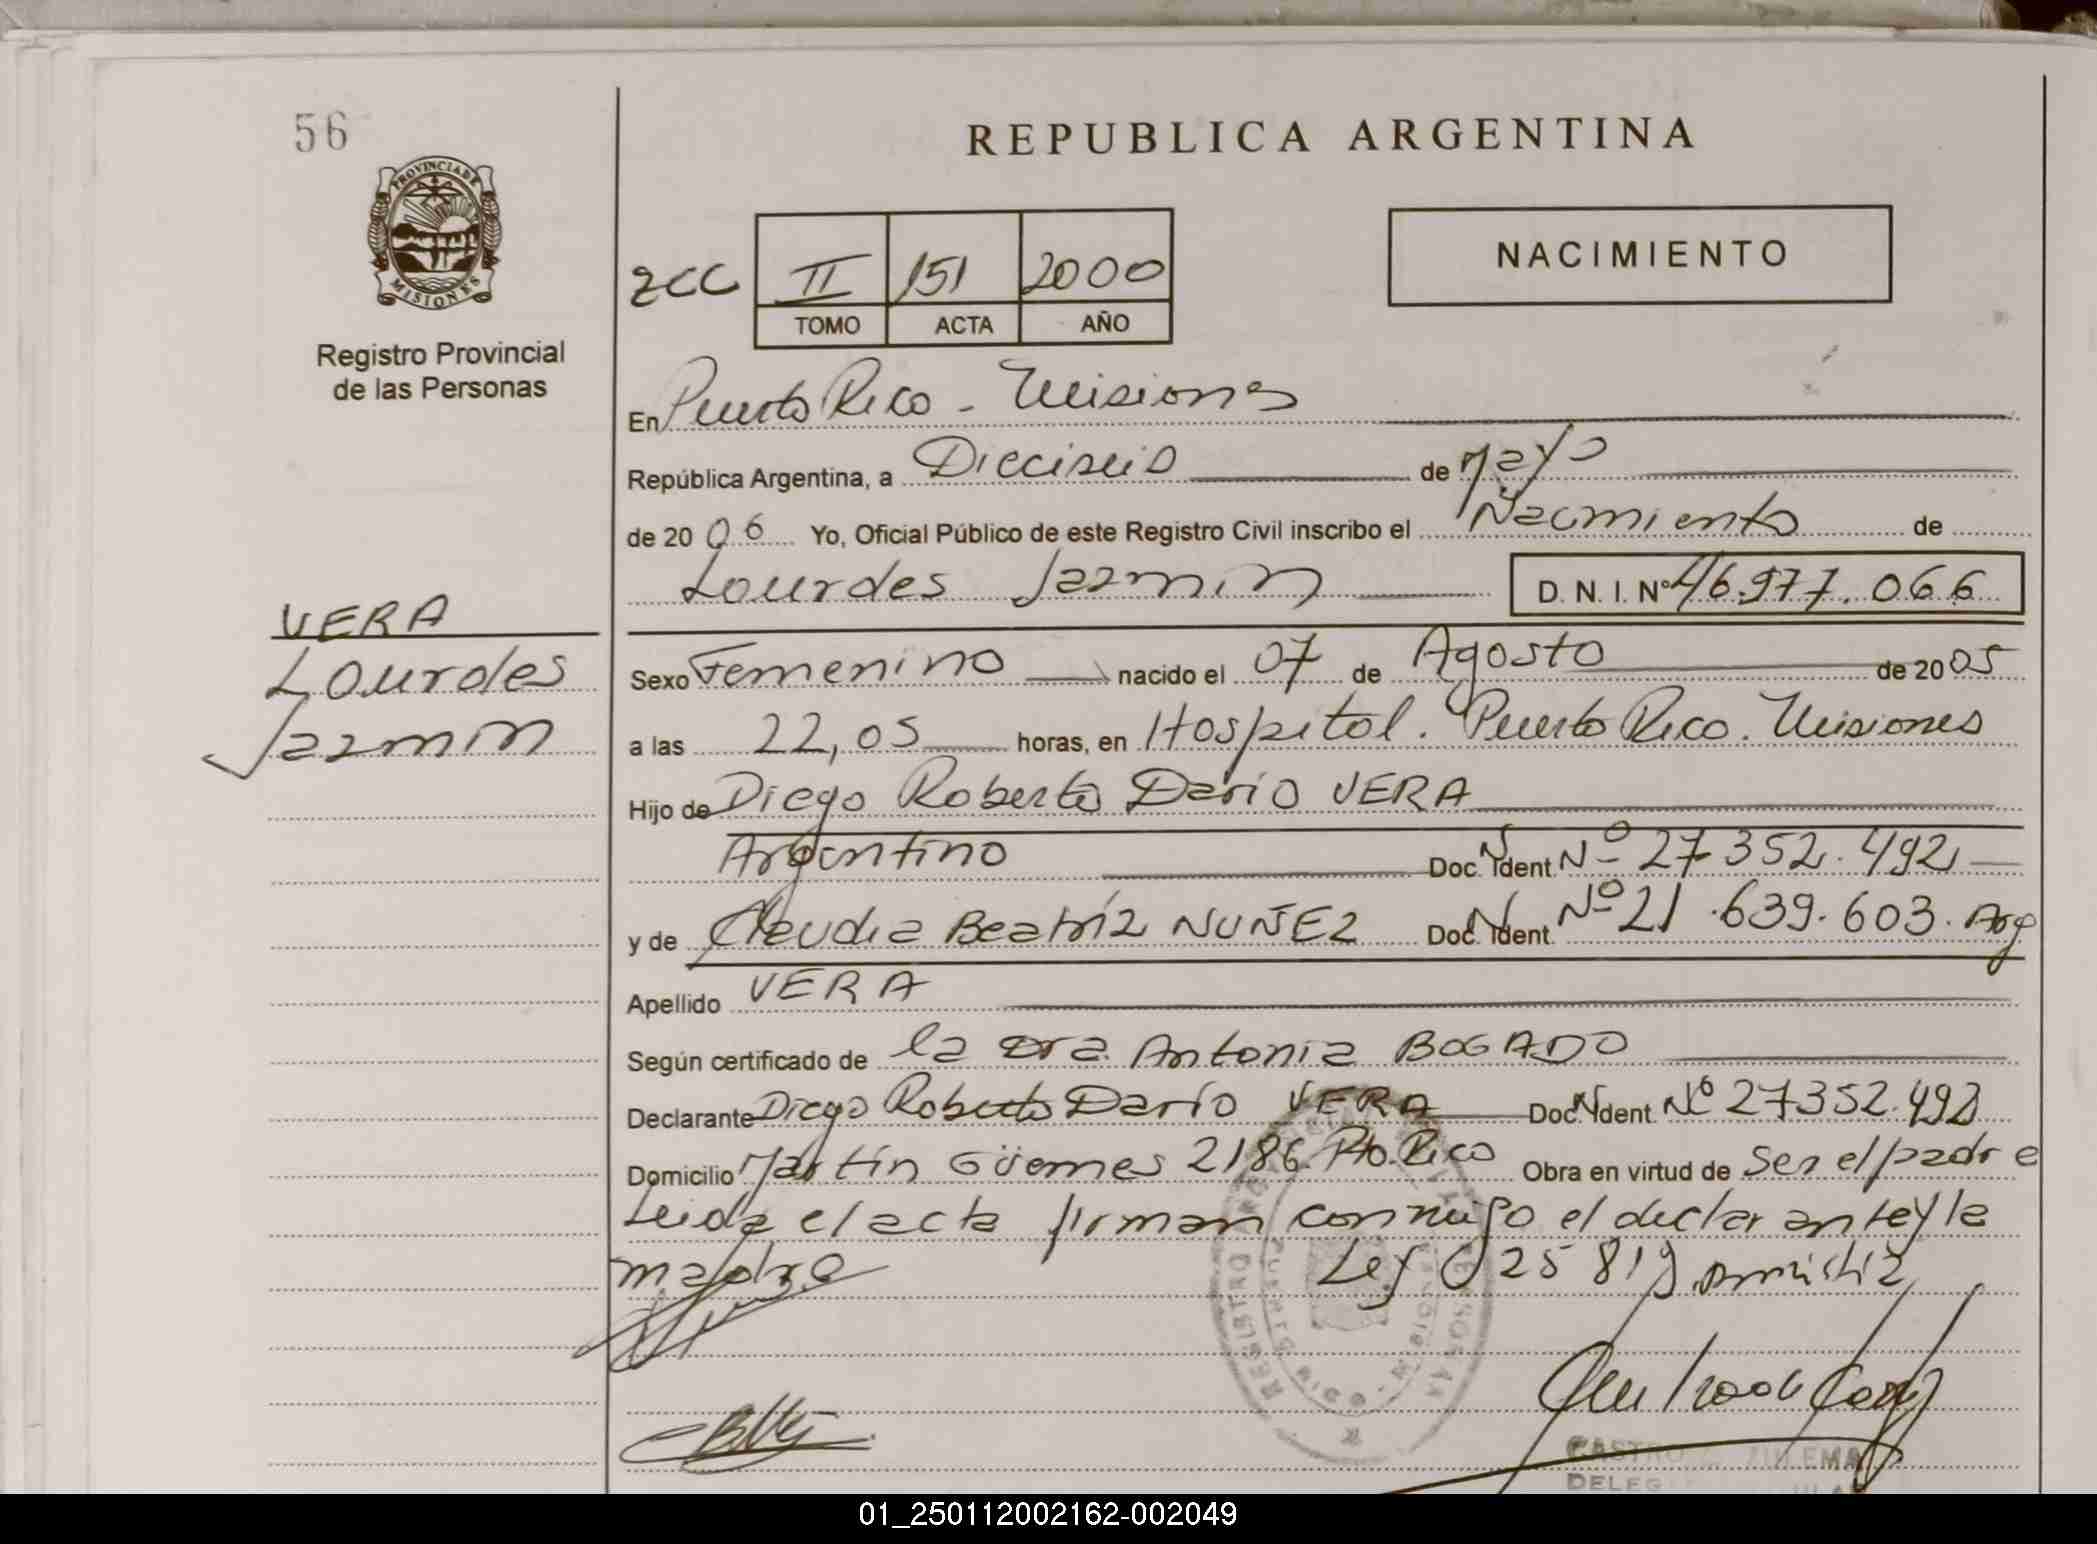 56
REPUBLICA ARGENTINA
PROVINCIA DE
MISIONES
Registro Provincial
de las Personas
NACIMIENTO
2CC II 151 2000
TOMO ACTA AÑO
En Puerto Rico - Misiones
República Argentina, a Dieciseis de Mayo
de 2006 Yo, Oficial Público de este Registro Civil inscribo el Nacimiento de
Lourdes Jazmin D.N.I. Nº 46.977.066
VERA
Lourdes
Jazmin
Sexo Femenino nacido el 07 de Agosto de 2005
a las 22,05 horas, en Hospital. Puerto Rico. Misiones
Hijo de Diego Roberto Dario VERA
Argentino Doc. Ident. Nº 27 352.492
y de Claudia Beatríz NUÑEZ Doc. Ident. Nº 21.639.603. Arg
Apellido VERA
Según certificado de la Dra. Antonia BOGADO
Declarante Diego Roberto Darío VERA Doc. Ident. Nº 27352.492
Domicilio Martín Güemes 2186. Pto. Rico Obra en virtud de Ser el padre
Leida el acta firman conmigo el declarante y la
madre Ley 25819 amnistia
REGISTRO
PUERTO RICO - MISIONES
CASTRO ZULEMA
DELEG
01_250112002162-002049